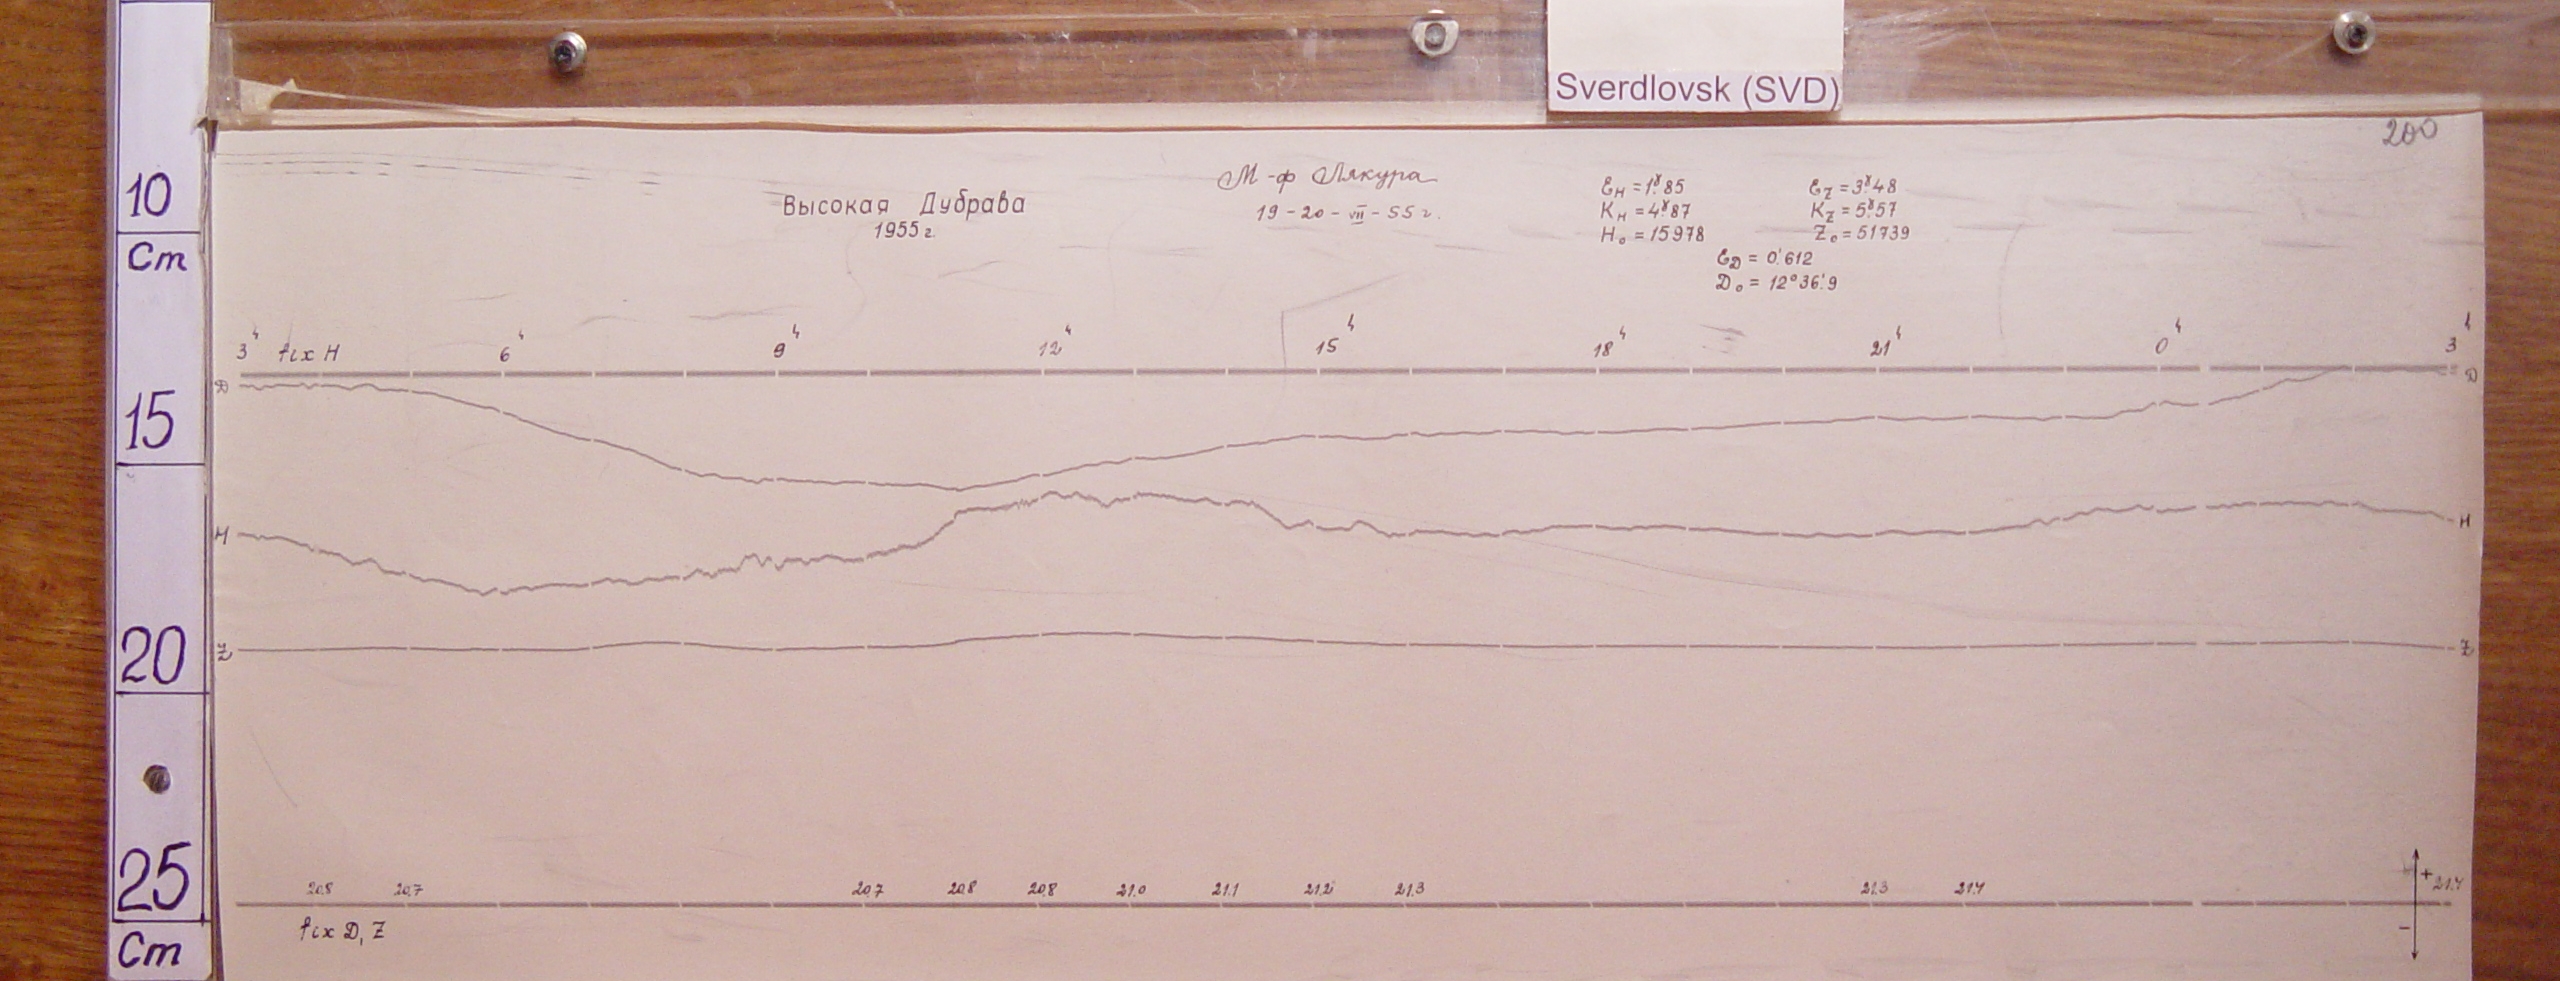 Sverdlovsk (SVD)
200
10
Cm
15
20
25
Cm
М-ф Лякура
19-20-VII-55 г.
Высокая Дубрава
1955 г.
ε_H = 1^γ.85
K_H = 4^γ.87
H_0 = 15978
ε_Z = 3^γ.48
K_Z = 5^γ.57
Z_0 = 51739
ε_D = 0'.612
D_0 = 12°36'.9
3^ч fix H 6^ч 9^ч 12^ч 15^ч 18^ч 21^ч 0^ч 3^ч
D D
H H
Z Z
20.8 20.7 20.7 20.8 20.8 21.0 21.1 21.2 21.3 21.3 21.4 21.4
+
−
fix D, Z